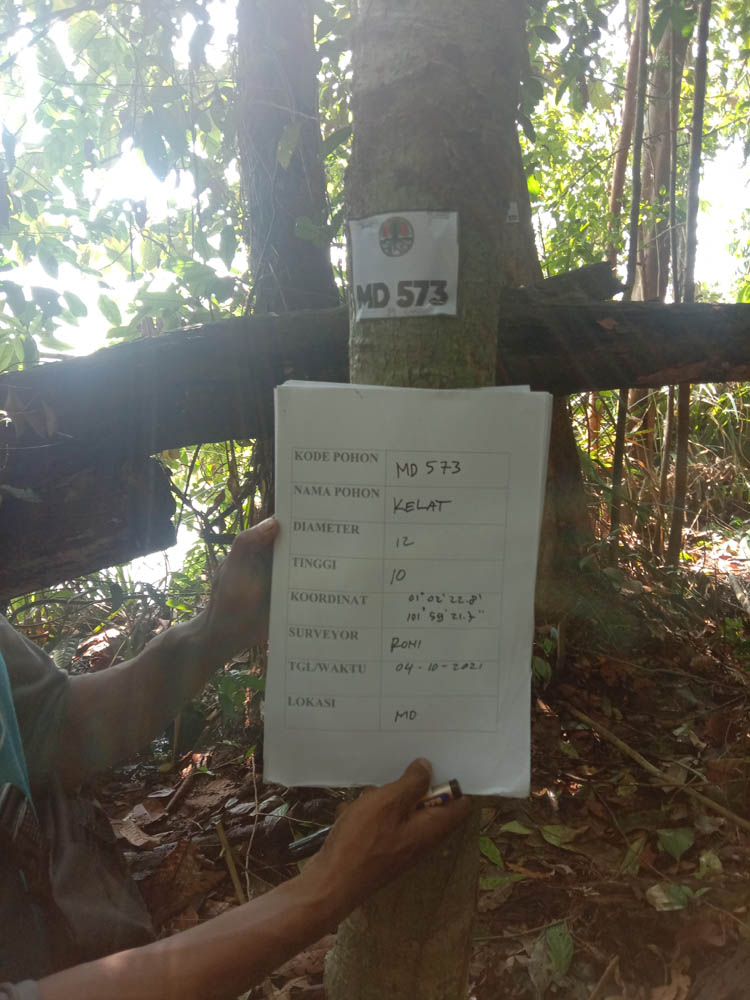 MD 573
KODE POHON MD 573
NAMA POHON KELAT
DIAMETER 12
TINGGI 10
KOORDINAT 01° 02' 22.8'
101° 59' 21.7"
SURVEYOR ROMI
TGL/WAKTU 04-10-2021
LOKASI MD